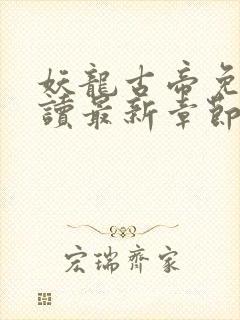 妖龍古帝免
讀最新章節
宏瑞齊家